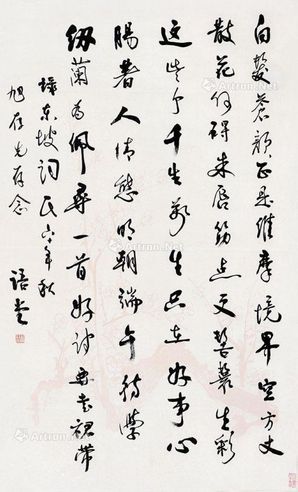 白髮蒼顏正是維摩境界空方丈
散花何碍朱唇筯點更髻鬟生彩
這些个千生萬生只在好事心
腸著人情態明朝端午待學
紉蘭為佩尋一首好詩要書裙帶
錄東坡詞民六十年秋 語堂
旭存念
Artron.Net